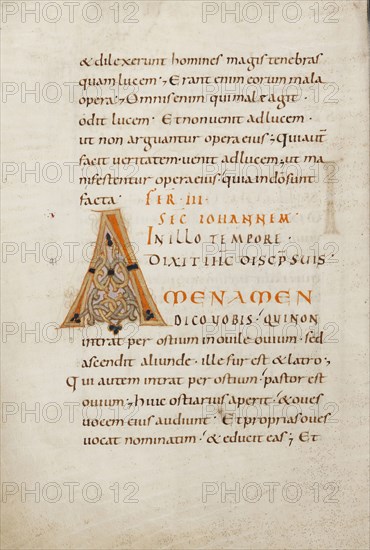 & dilexerunt homines magis tenebras
quam lucem; Erant enim eorum mala
opera; Omnis enim qui male agit
odit lucem. Et non venit ad lucem;
ut non arguantur opera eius; Qui aut̄
facit veritatem venit ad lucem; ut ma
nifestentur opera eius; quia in dō sunt
facta.
FER III.
SEC IOHANNEM
IN ILLO TEMPORE.
DIXIT IHC DISCP̄SUIS
AMEN AMEN
DICO VOBIS. QUI NON
intrat per ostium in ovile ovium. sed
ascendit aliunde. ille fur est & latro;
Qui autem intrat per ostium. pastor est
ovium; huic ostiarius aperit. & oves
vocem eius audiunt. Et proprias oves
vocat nominatim. & educit eas; Et
PHOTO 12